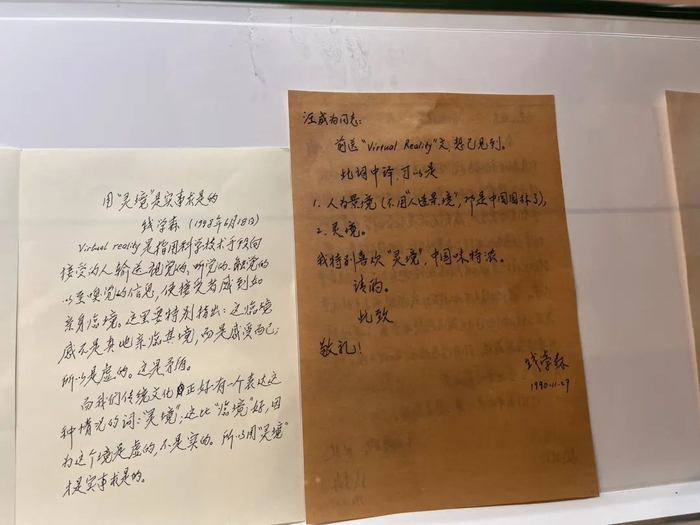 用“灵境”是实事求是的
钱学森 (1998年6月18日)
Virtual reality是指用科学技术手段向
接受的人输送视觉的、听觉的、触觉的
以至嗅觉的信息，使接受者感到如
亲身临境。这里要特别指出：这临境
感不是真地亲临其境，而是感受而已；
所以是虚的。这是矛盾。
而我们传统文化正好有一个表达这
种情况的词：“灵境”；这比“临境”好，因
为这个境是虚的，不是实的。所以用“灵境”
才是实事求是的。
汪成为同志：
前送“Virtual Reality”文，想已见到。
此词中译，可以是
1. 人为景境(不用“人造景境”，那是中国园林了)，
2. 灵境。
我特别喜欢“灵境”，中国味特浓。
请酌。
此致
敬礼！
钱学森
1990.11.27